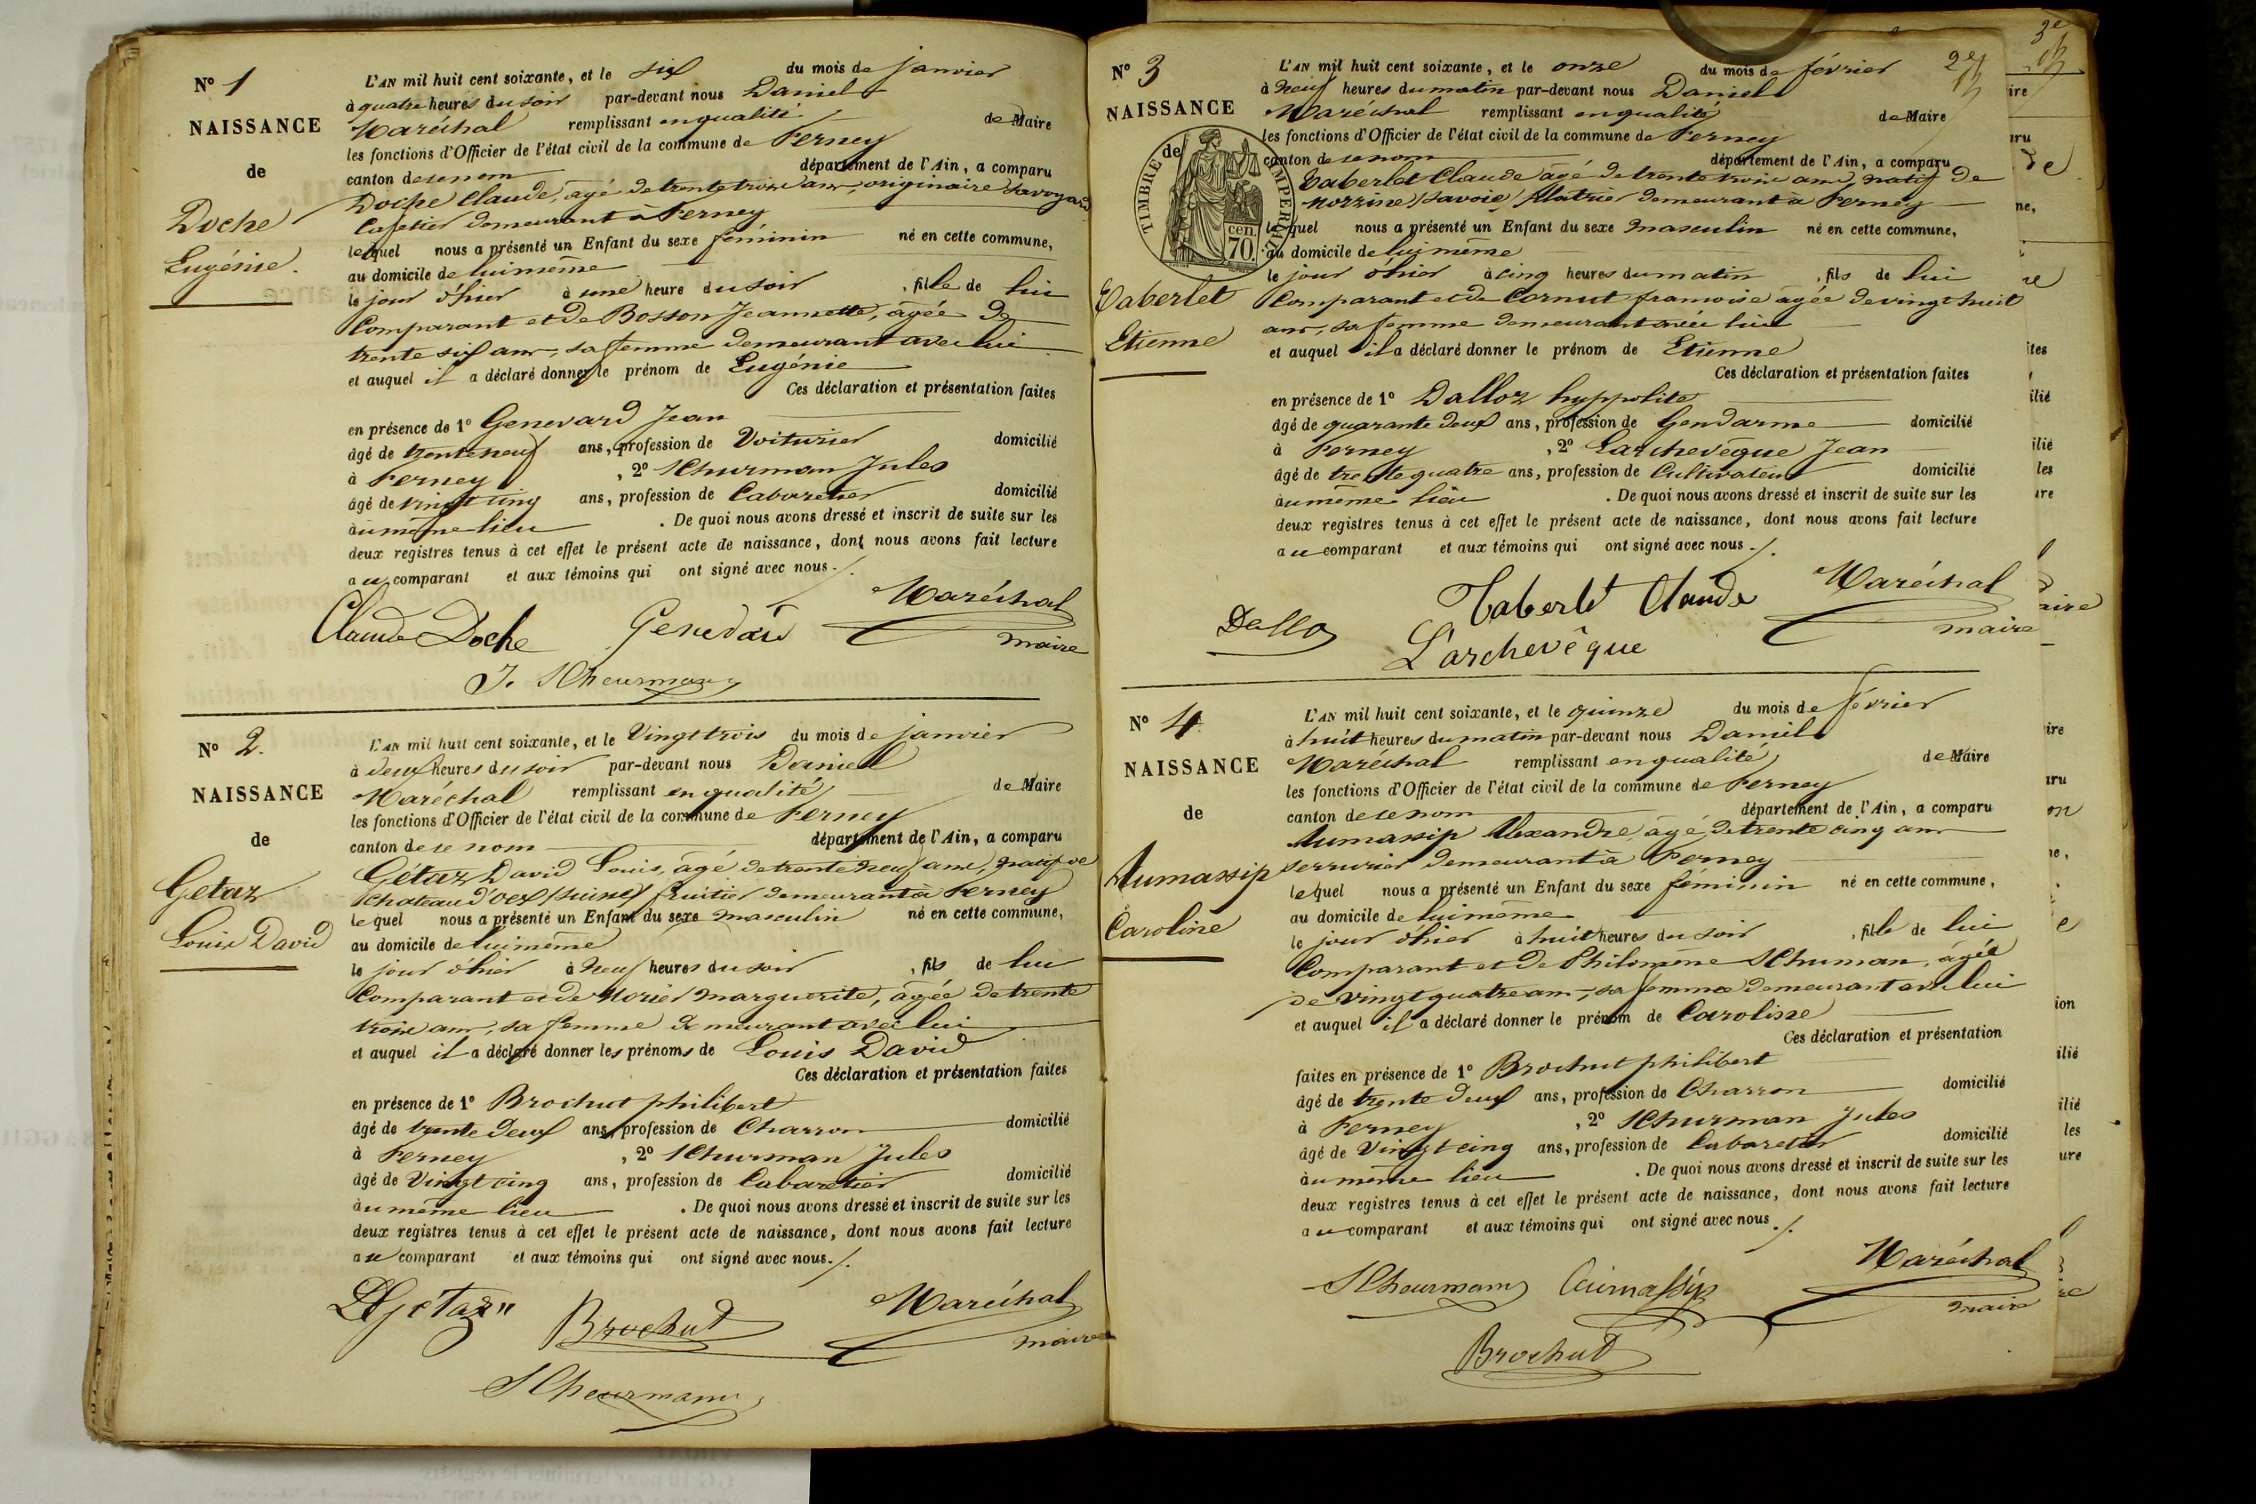 N° 1
NAISSANCE
de
Doche
Eugénie.
L'AN mil huit cent soixante, et le six du mois de janvier
à quatre heures du soir par-devant nous Daniel
Maréchal remplissant en qualité de Maire
les fonctions d'Officier de l'état civil de la commune de Ferney
canton de ce nom département de l'Ain, a comparu
Doche Claude, âgé de trente trois ans, originaire savoyard
Cafetier demeurant à Ferney
lequel nous a présenté un Enfant du sexe féminin né en cette commune,
au domicile de lui même
le jour d'hier à une heure du soir, fille de lui
Comparant et de Bosson Jeannette, âgée de
trente six ans, sa femme demeurant avec lui
et auquel il a déclaré donner le prénom de Eugénie
Ces déclaration et présentation faites
en présence de 1° Genevard Jean
âgé de trente neuf ans, profession de Voiturier domicilié
à Ferney, 2° Schurman Jules
âgé de vingt cinq ans, profession de Cabaretier domicilié
au même lieu. De quoi nous avons dressé et inscrit de suite sur les
deux registres tenus à cet effet le présent acte de naissance, dont nous avons fait lecture
au comparant et aux témoins qui ont signé avec nous ./.
Claude Doche Maréchal
maire
J. Scheurmann
N° 2.
NAISSANCE
de
Getaz
Louis David
L'AN mil huit cent soixante, et le Vingt trois du mois de janvier
à deux heures du soir par-devant nous Daniel
Maréchal remplissant en qualité de Maire
les fonctions d'Officier de l'état civil de la commune de Ferney
canton de ce nom département de l'Ain, a comparu
Gétaz David Louis, âgé de trente neuf ans, natif de
Chateau d'oex (suisse) fruitier demeurant à Ferney
lequel nous a présenté un Enfant du sexe masculin né en cette commune,
au domicile de lui même
le jour d'hier à neuf heures du soir, fils de lui
Comparant et de Morier marguerite, âgée de trente
trois ans, sa femme demeurant avec lui
et auquel il a déclaré donner les prénoms de Louis David
Ces déclaration et présentation faites
en présence de 1° Brochut philibert
âgé de trente deux ans, profession de Charron domicilié
à Ferney, 2° Schurman Jules
âgé de Vingt cinq ans, profession de Cabaretier domicilié
au même lieu. De quoi nous avons dressé et inscrit de suite sur les
deux registres tenus à cet effet le présent acte de naissance, dont nous avons fait lecture
au comparant et aux témoins qui ont signé avec nous ./.
Brochut Maréchal
maire
Scheurmann
2e
N° 3
NAISSANCE
de
TIMBRE IMPERIAL
cen.
70.
Taberlet
Etienne
L'AN mil huit cent soixante, et le onze du mois de février
à neuf heures du matin par-devant nous Daniel
Maréchal remplissant en qualité de Maire
les fonctions d'Officier de l'état civil de la commune de Ferney
canton de ce nom département de l'Ain, a comparu
Taberlet Claude âgé de trente trois ans, natif de
morzine (savoie) platrier demeurant à Ferney
lequel nous a présenté un Enfant du sexe masculin né en cette commune,
au domicile de lui même
le jour d'hier à cinq heures du matin, fils de lui
Comparant et de Cornut françoise âgée de vingt huit
ans, sa femme demeurant avec lui
et auquel il a déclaré donner le prénom de Etienne
Ces déclaration et présentation faites
en présence de 1° Dalloz hyppolite
âgé de quarante deux ans, profession de Gendarme domicilié
à Ferney, 2° Larchevêque Jean
âgé de trente quatre ans, profession de Cultivateur domicilié
au même lieu. De quoi nous avons dressé et inscrit de suite sur les
deux registres tenus à cet effet le présent acte de naissance, dont nous avons fait lecture
au comparant et aux témoins qui ont signé avec nous ./.
Taberlet Claude Maréchal
maire
L'archevêque
N° 4
NAISSANCE
de
Aumassip
Caroline
L'AN mil huit cent soixante, et le quinze du mois de février
à huit heures du matin par-devant nous Daniel
Maréchal remplissant en qualité de Maire
les fonctions d'Officier de l'état civil de la commune de Ferney
canton de ce nom département de l'Ain, a comparu
Aumassip Alexandre, âgé de trente cinq ans
serrurier demeurant à Ferney
lequel nous a présenté un Enfant du sexe féminin né en cette commune,
au domicile de lui même
le jour d'hier à huit heures du soir, fille de lui
Comparant et de Philomène Schuman, âgée
de vingt quatre ans, sa femme demeurant avec lui
et auquel il a déclaré donner le prénom de Caroline
Ces déclaration et présentation
faites en présence de 1° Brochut philibert
âgé de trente deux ans, profession de Charron domicilié
à Ferney, 2° Schurman Jules
âgé de Vingt cinq ans, profession de Cabaretier domicilié
au même lieu. De quoi nous avons dressé et inscrit de suite sur les
deux registres tenus à cet effet le présent acte de naissance, dont nous avons fait lecture
au comparant et aux témoins qui ont signé avec nous ./.
Scheurmann Aumassip Maréchal
maire
Brochut